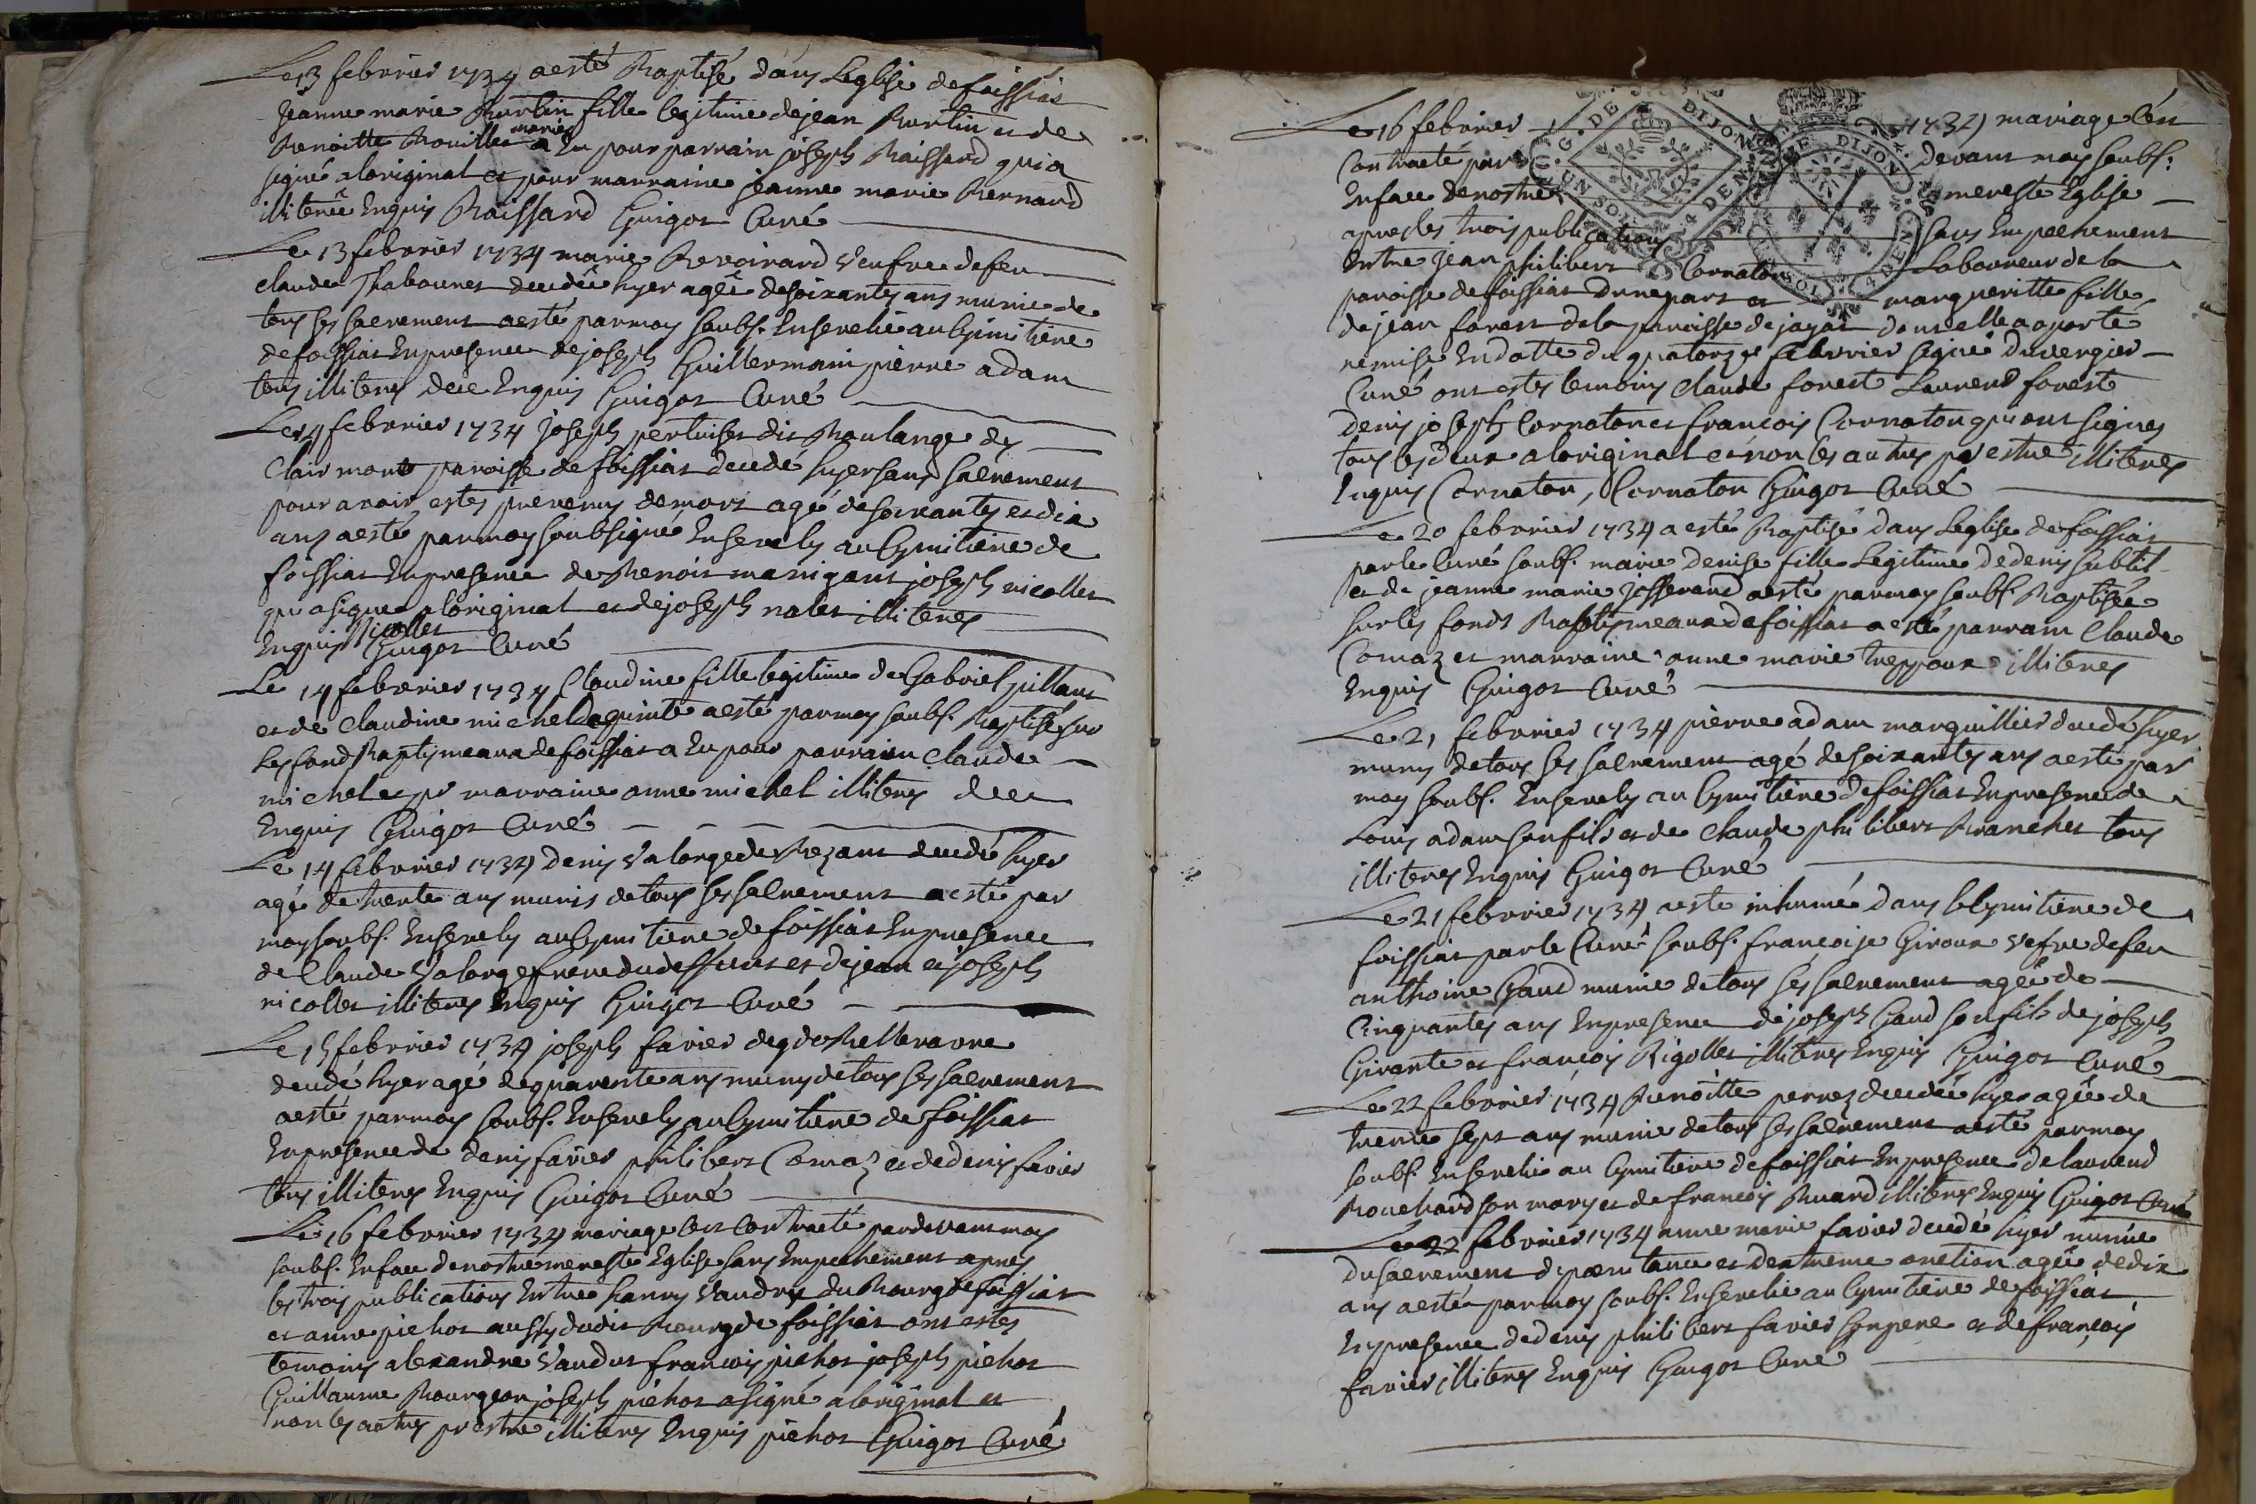 Le 13 febvrier 1734 a esté Baptisé dans Leglise de foissiat
Jeanne marie Burtin fille legitime de jean Burtin et de
Benoitte Bouiller mariés a Eu pour parrain joseph Baissard qui a
signé a loriginal et pour marraine jeanne marie Bernard
illiterée Enquis Baissard Guigot Curé
Le 13 febvrier 1734 marie Revoirard veufve de feu
claude Thabouret decedée hyer agée de soixantes ans munie de
tous ses sacrement a esté par moy soubs. Ensevelie au Cymitiere
de foissiat En presence de joseph Guillermain pierre adam
tous illiteres de ce Enquis Guigot Curé
Le 14 febvrier 1734 joseph pertuiset dit Boulange de
Clairmont paroisse de foissiat decedé hyer sans sacrement
pour avoir estes prevenus de mort agé de soixantes et dix
ans a esté par moy soubsigné Ensevely au Cymitiere de
foissiat En presence de Benoit manigant joseph nicollet
qui a signe a loriginal et de joseph nalet illiteres
Enquis Nicollet Guigot Curé
Le 14 febvrier 1734 Claudine fille legitime de Gabriel pillant
et de Claudine michel daguinte a esté par moy soubs. Baptisé sur
les fond Baptismeaux de foissiat a Eu pour parrain Claude
michel et pr marraine anne michel illiteres de ce
Enquis Guigot Curé
Le 14 febvrier 1734 denis valorge de Bezant decedé hyer
agé de trente ans munis de tous ses sacrement a esté par
moy soubs. Ensevely au Cymitiere de foissiat En presence
de Claude valorge frere du deffunt et de jean et joseph
nicollet illiteres Enquis Guigot Curé
Le 15 febvrier 1734 joseph favier de
decedé hyer agé de quarente ans munys de tous ses sacrement
a esté par moy soubs. Ensevely au Cymitiere de foissiat
En presence de denis favier philibert Comaz et de denis favier
tous illiteres Enquis Guigot Curé
Le 16 febvrier 1734 mariage Cest Contracté pardevant moy
soubs. En face de nostre mere ste Eglise sans Empechement apres
les trois publications Entre hanry vaudry du Bourg de foissiat
et anne pichot aussy dudit Bourg de foissiat ont estes
temoins alexandre vaudut francois pichot joseph pichot
Guillaume Bourgeon joseph pichot a signé a loriginal et
non les autres pr estre illiteres Enquis pichot Guigot Curé
Le 16 febvrier 1734 mariage Cest
Contracté par devant moy soubs.
En face de nostre mere ste Eglise
apres les trois publications sans Empechement
Entre jean philibert Cornaton Laboureur de la
paroisse de foissiat dune part et margueritte fille
de jean forest de la paroisse de jayat dont elle a aporté
remise En datte du quatorze febvrier signé duvergier
Curé ont estes temoins Claude forest Laurend forest
denis joseph Cornaton et francois Cornaton qui ont signes
tous les deux a loriginal et non les autres pr estre illiteres
Enquis Cornaton, Cornaton Guigot Curé
Le 20 febvrier 1734 a esté Baptisé dans Leglise de foissiat
par le Curé soubs. marie denise fille Legitime de denis subtil
et de jeanne marie josserand a esté par moy soubs. Baptisée
sur les fonds Baptismeaux de foissiat a esté parrain Claude
Comaz et marraine anne marie treppoux illiteres
Enquis Guigot Curé
Le 21 febvrier 1734 pierre adam marguillier decedé hyer
munys de tous ses sacrement agé de soixantes ans a esté par
moy soubs. Ensevely au Cymitiere de foissiat En presence de
Louis adam son fils et de Claude philibert Branchet tous
illiteres Enquis Guigot Curé
Le 21 febvrier 1734 a esté inhumé dans le Cymitiere de
foissiat par le Curé soubs. francoise Giroux vefve de feu
anthoine Gaud munie de tous ses sacrement agée de
Cinquantes ans En presence de joseph Gaud son fils de joseph
Girante et françois Rigollet illiteres Enquis Guigot Curé
Le 22 febvrier 1734 Benoitte perrez decedée hyer agée de
trente sept ans munie de tous ses sacrement a esté par moy
soubs. Ensevelie au Cymitiere de foissiat En presence de laurend
Bouchard son mary et de francois Buard illiteres Enquis Guigot Curé
Le 22 febvrier 1734 anne marie favier decedé hyer munie
du sacrement de poenitance et dextreme onction agée de dix
ans a esté par moy soubs. Ensevelie au Cymitiere de foissiat
En presence de denis philibert favier son pere et de françois
favier illiteres Enquis Guigot Curé
G. DE DIJON
UN SOL 4 DEN
G. DE DIJON
SOL 4 DEN